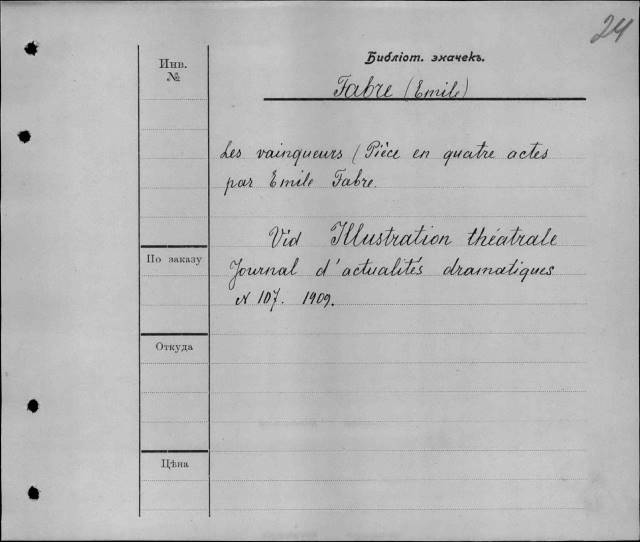 24
Библіот. значекъ.
Инв.
№
Fabre (Emile)
Les vainqueurs / Pièce en quatre actes
par Emile Fabre.
Vid Illustration théatrale
По заказу
Journal d'actualités dramatiques
N 107. 1909.
Откуда
Цѣна